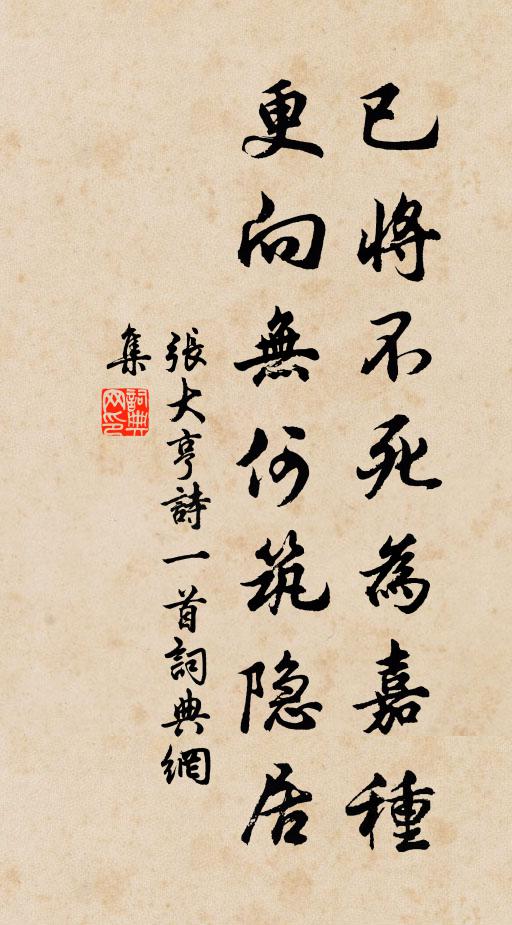 已將不死為嘉種
更向無何筑隐居
張大亨詩一首詞典網
集
詞典网印